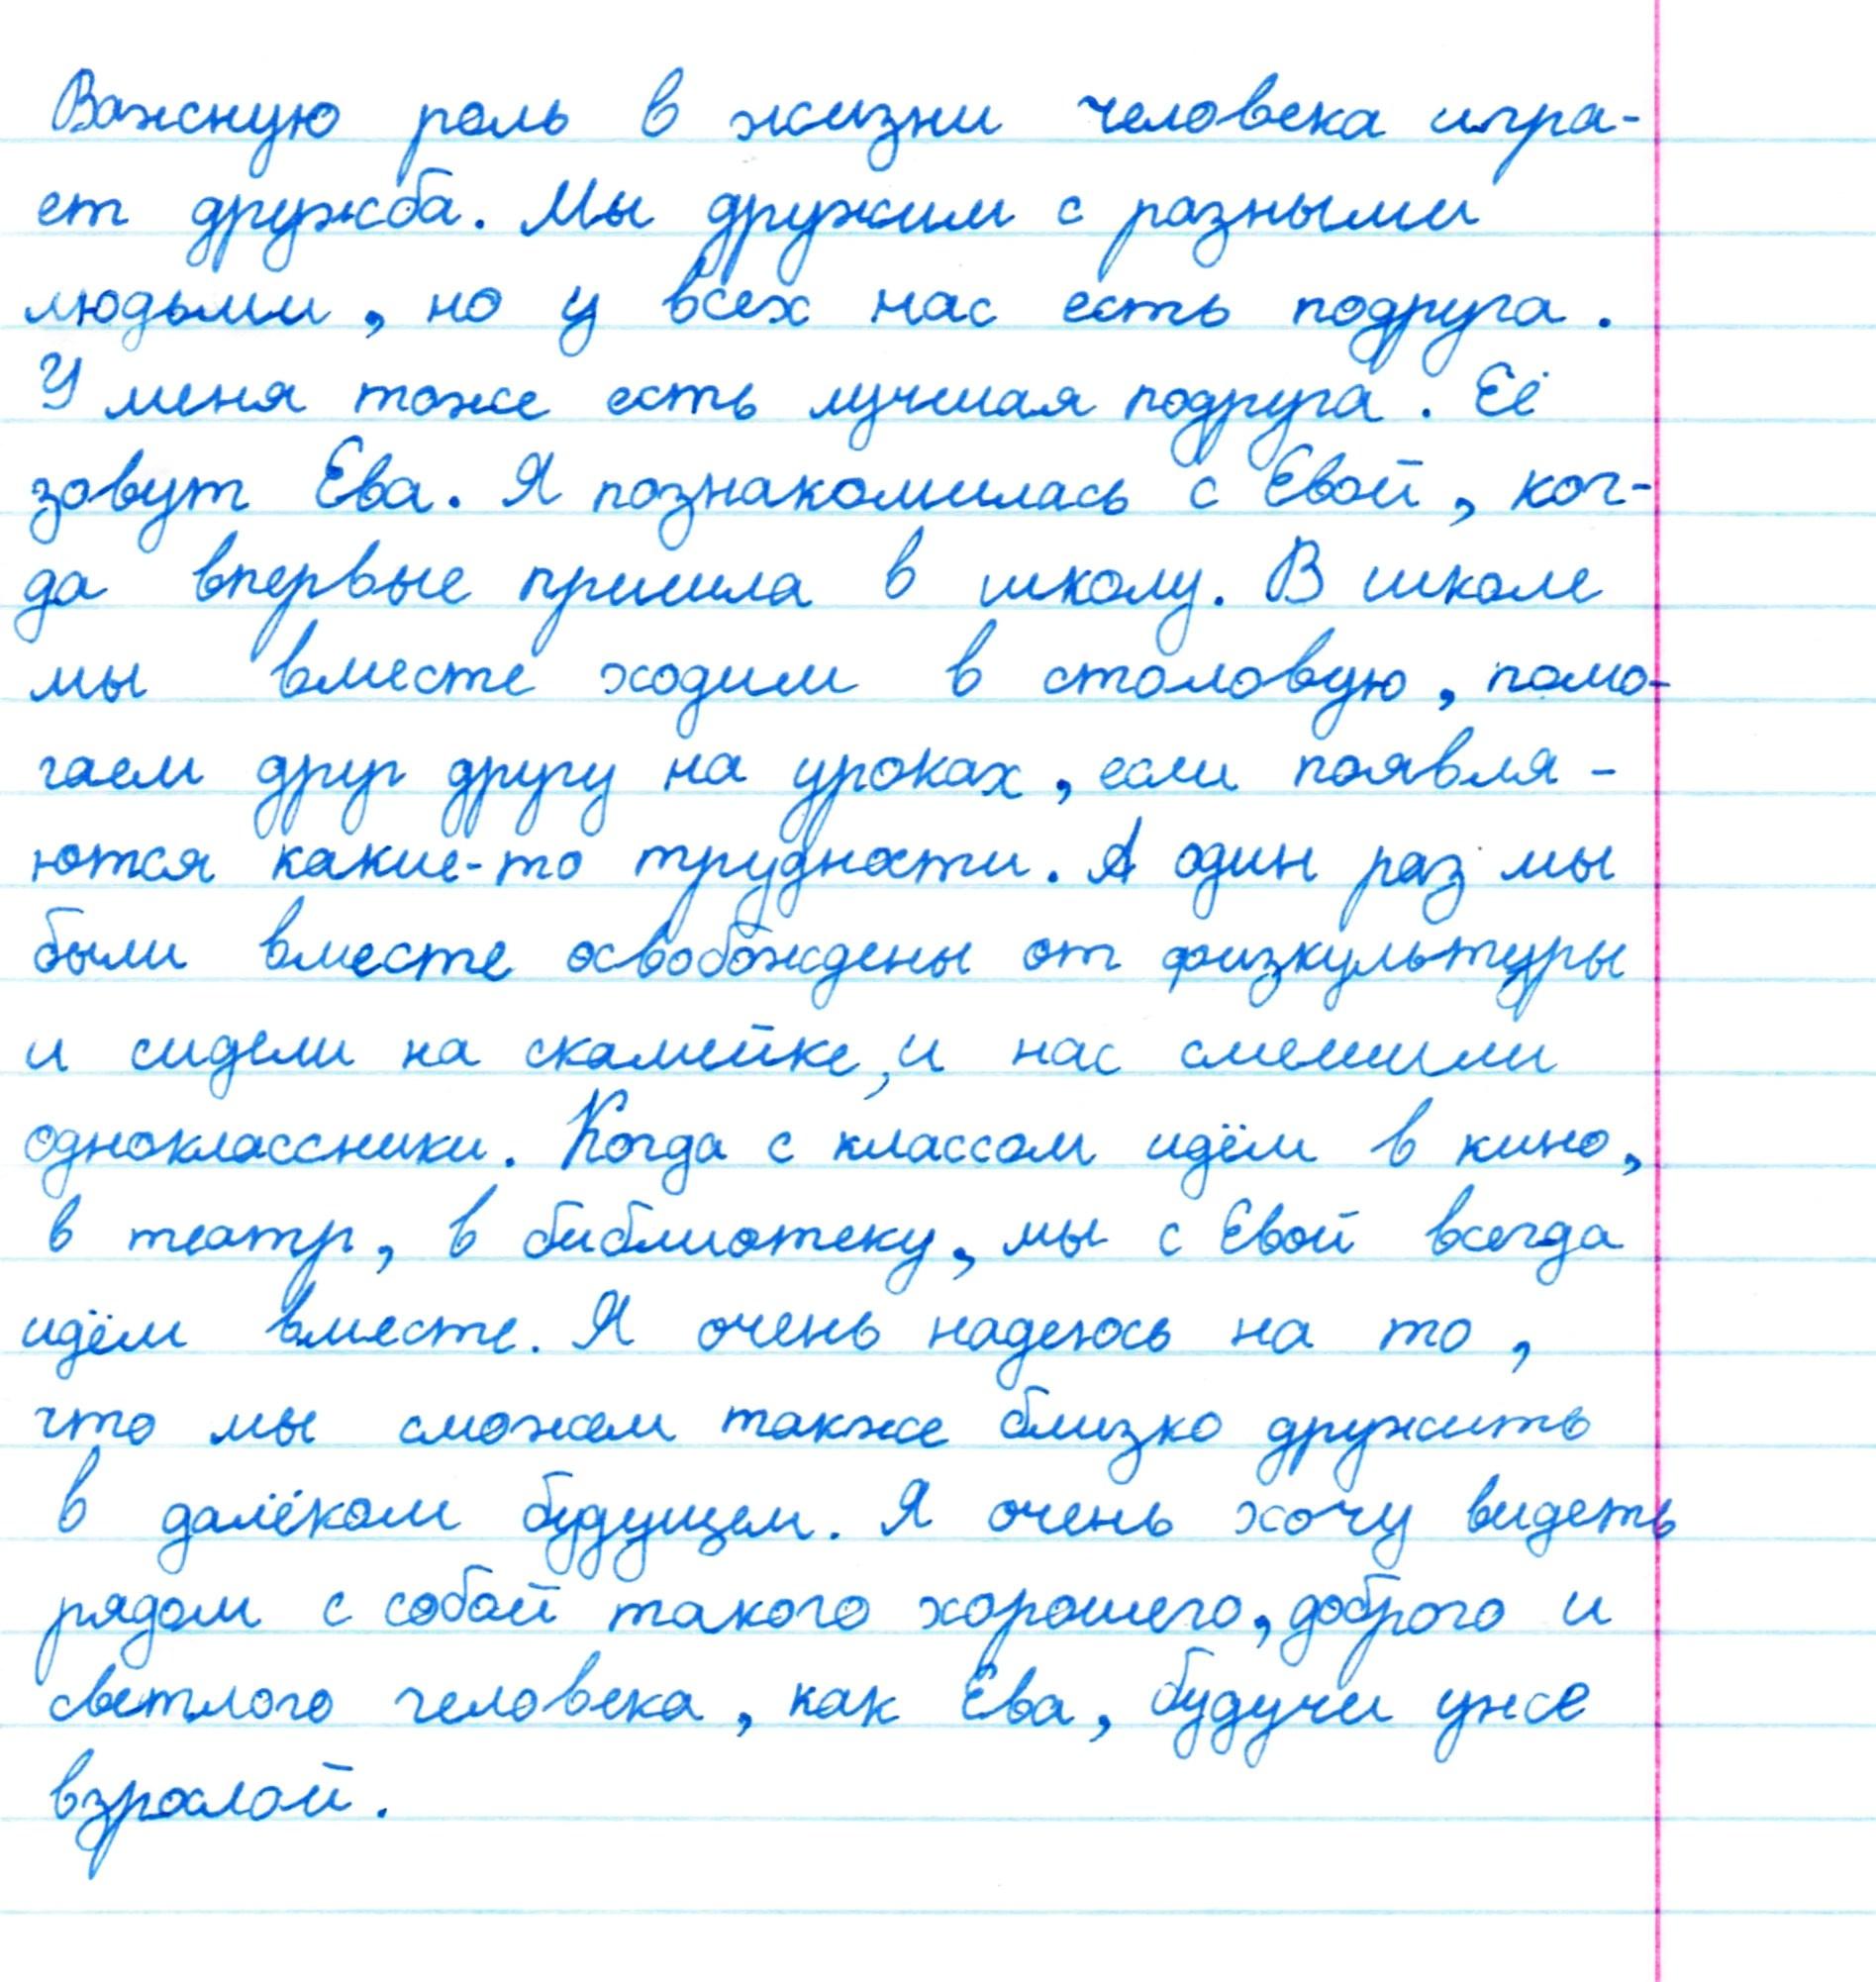 Важную роль в жизни человека игра-
ет дружба. Мы дружим с разными
людьми, но у всех нас есть подруга.
У меня тоже есть лучшая подруга. Её
зовут Ева. Я познакомилась с Евой, ког-
да впервые пришла в школу. В школе
мы вместе ходим в столовую, помо-
гаем друг другу на уроках, если появля-
ются какие-то трудности. А один раз мы
были вместе освобождены от физкультуры
и сидели на скамейке, и нас смешили
одноклассники. Когда с классом идём в кино,
в театр, в библиотеку, мы с Евой всегда
идём вместе. Я очень надеюсь на то,
что мы сможем также близко дружить
в далёком будущем. Я очень хочу видеть
рядом с собой такого хорошего, доброго и
светлого человека, как Ева, будучи уже
взрослой.